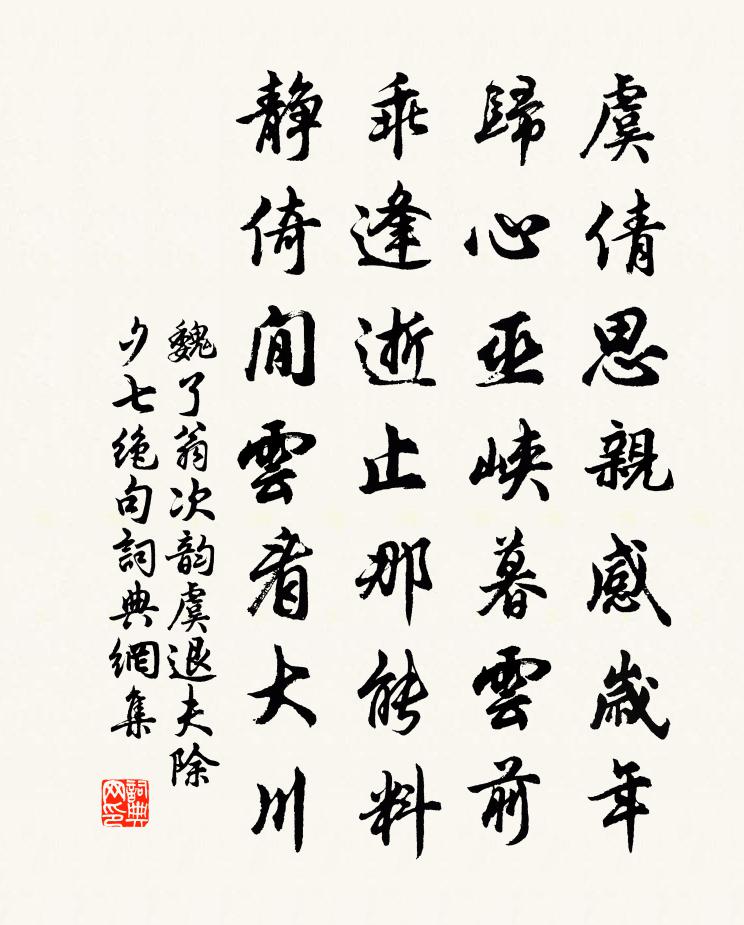 虞倩思親感歲年
歸心巫峽暮雲前
乘逢逝止那能料
靜倚閒雲看大川
魏了翁次韵虞退夫除
夕七绝句詞典網集
詞典网印